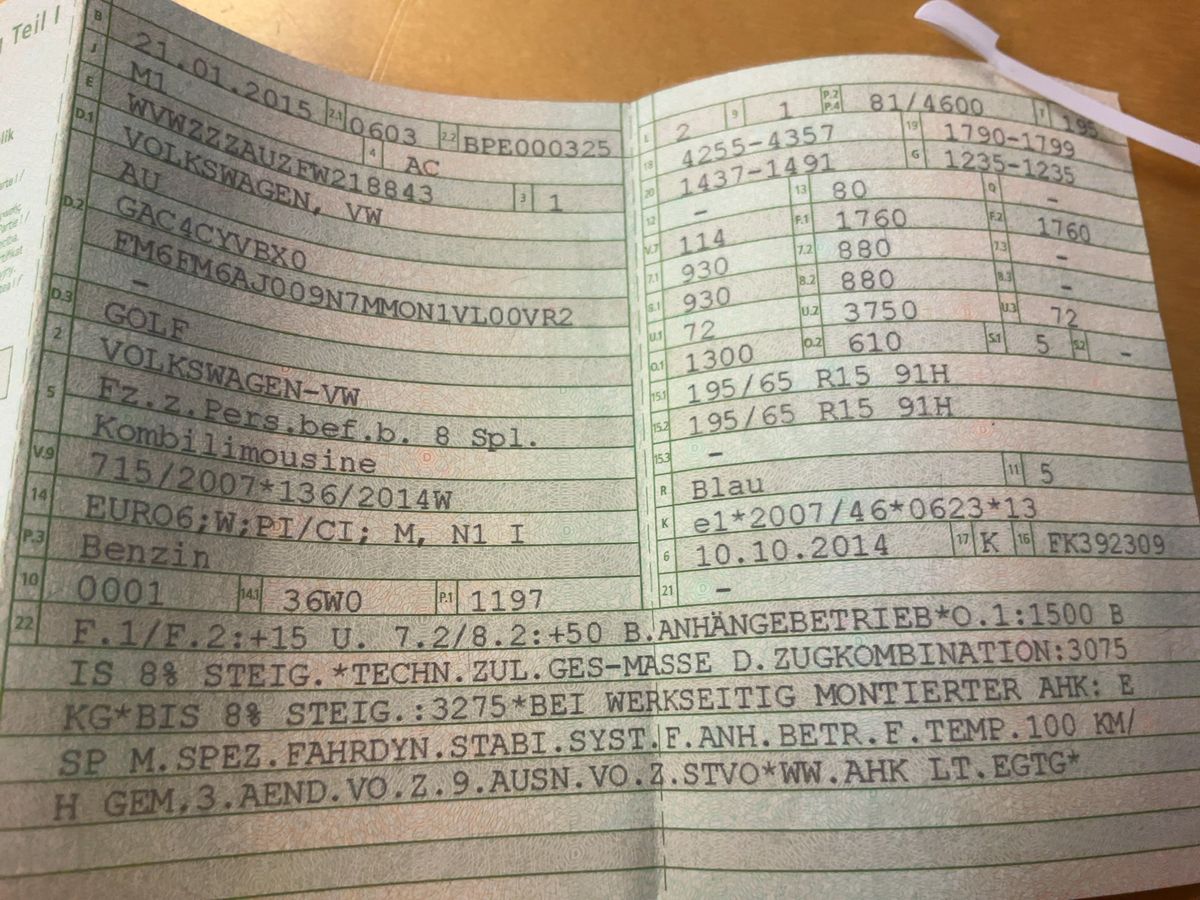 g Teil I
B 21.01.2015 2.1 0603 2.2 BPE000325
J M1 4 AC
E WVWZZZAUZFW218843 3 1
D.1 VOLKSWAGEN, VW
AU
D.2 GAC4CYVBX0
FM6FM6AJ009N7MMON1VL00VR2
–
D.3 GOLF
2 VOLKSWAGEN-VW
5 Fz.z.Pers.bef.b. 8 Spl.
Kombilimousine
V.9 715/2007*136/2014W
14 EURO6;W;PI/CI; M, N1 I
P.3 Benzin
10 0001 14.1 36W0 P.1 1197
L 2 9 1 P.2 P.4 81/4600 T 195
18 4255-4357 19 1790-1799
20 1437-1491 G 1235-1235
12 – 13 80 Q –
V.7 114 F.1 1760 F.2 1760
7.1 930 7.2 880 7.3 –
8.1 930 8.2 880 8.3 –
U.1 72 U.2 3750 U.3 72
O.1 1300 O.2 610 S.1 5 S.2 –
15.1 195/65 R15 91H
15.2 195/65 R15 91H
15.3 –
R Blau 11 5
K e1*2007/46*0623*13
6 10.10.2014 17 K 16 FK392309
21 –
22 F.1/F.2:+15 U. 7.2/8.2:+50 B.ANHÄNGEBETRIEB*O.1:1500 B
IS 8% STEIG.*TECHN.ZUL.GES-MASSE D.ZUGKOMBINATION:3075
KG*BIS 8% STEIG.:3275*BEI WERKSEITIG MONTIERTER AHK: E
SP M.SPEZ.FAHRDYN.STABI.SYST.F.ANH.BETR.F.TEMP.100 KM/
H GEM.3.AEND.VO.Z.9.AUSN.VO.Z.STVO*WW.AHK LT.EGTG*